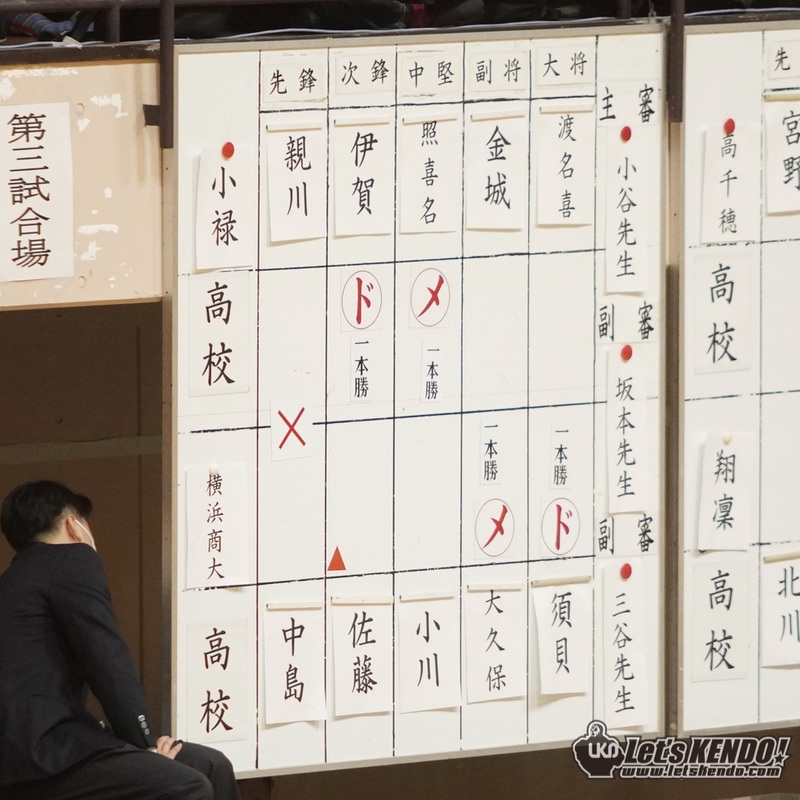 第三試合場
先鋒 次鋒 中堅 副将 大将
主審
小禄高校
親川
伊賀
照喜名
金城
渡名喜
小谷先生
ド
メ
一本勝
一本勝
副審
坂本先生
×
一本勝
一本勝
メ
ド
副審
横浜商大高校
中島
佐藤
小川
大久保
須貝
三谷先生
先
高千穂高校
宮野
翔凜高校
北川
UKN Let'sKENDO!
www.letskendo.com